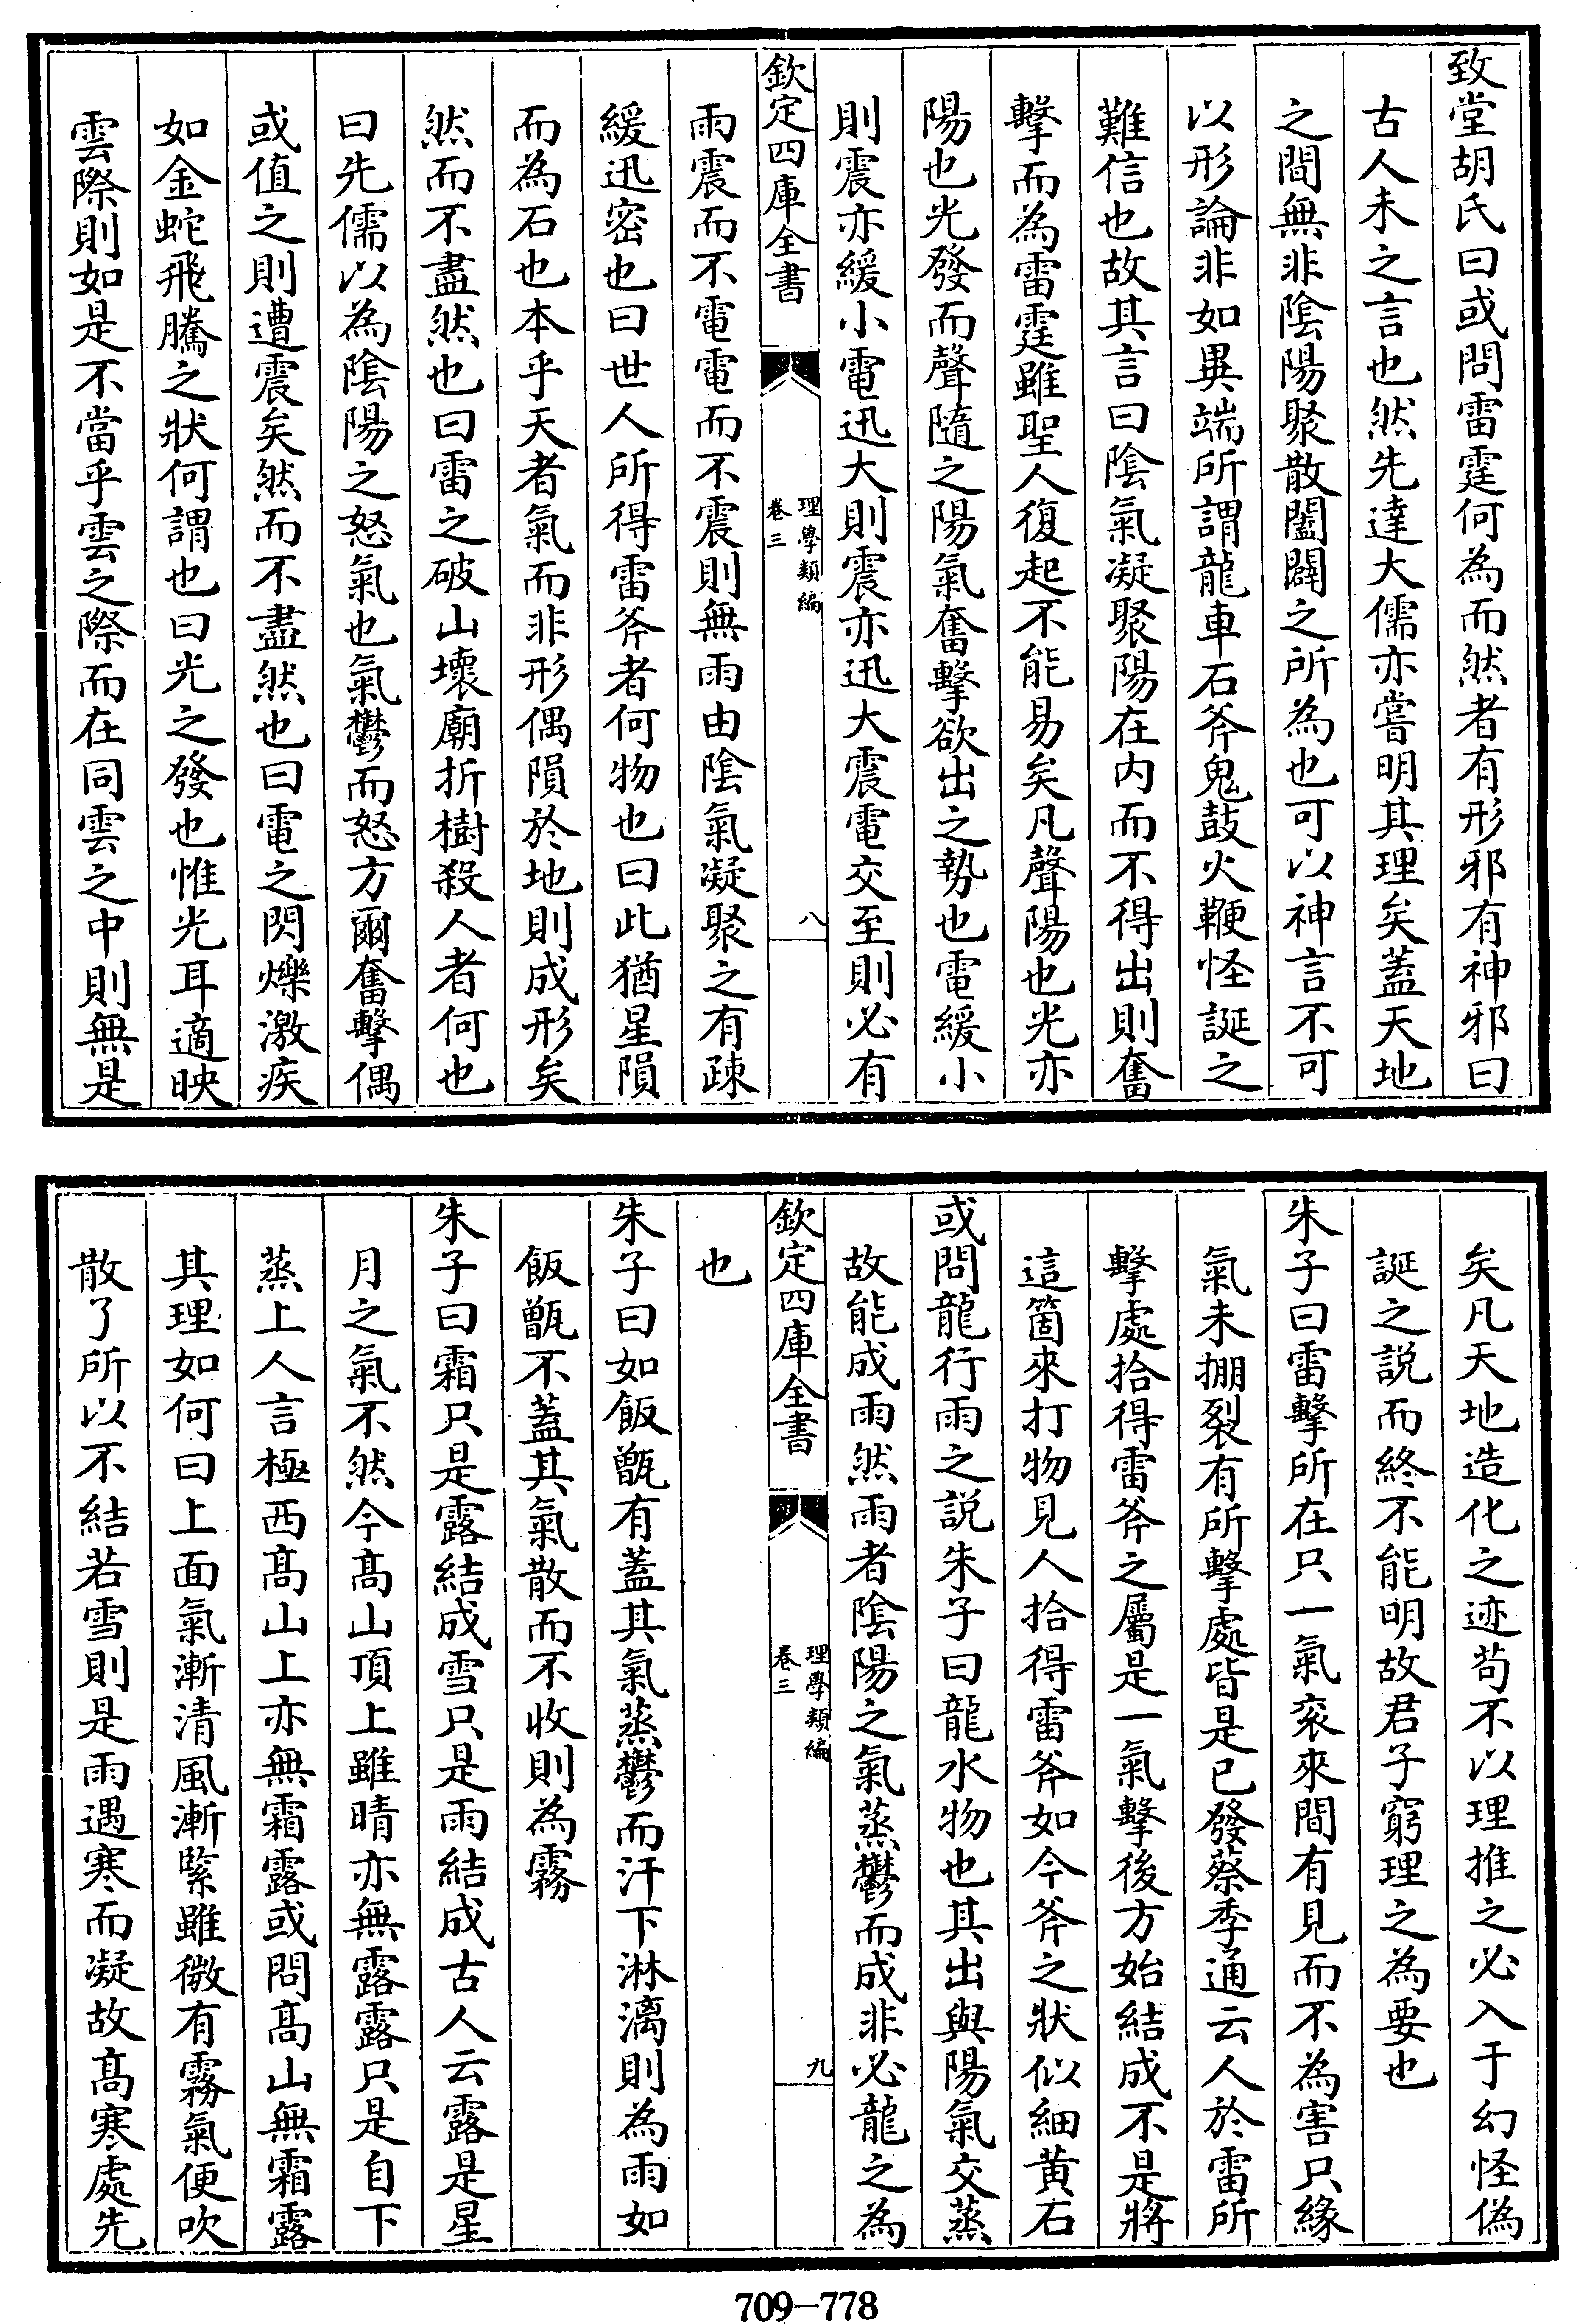 致堂胡氏曰或問雷霆何為而然者有形邪有神邪曰
古人未之言也然先達大儒亦嘗明其理矣蓋天地
之間無非隂陽聚散闔闢之所為也可以神言不可
以形論非如異端所謂龍車石斧鬼鼓火鞭怪誕之
難信也故其言曰隂氣凝聚陽在内而不得出則奮
擊而為雷霆雖聖人復起不能易矣凡聲陽也光亦
陽也光發而聲隨之陽氣奮擊欲出之勢也電緩小
則震亦緩小電迅大則震亦迅大震電交至則必有
欽定四庫全書
理學類編
卷三
八
雨震而不電電而不震則無雨由隂氣凝聚之有疎
緩迅密也曰世人所得雷斧者何物也曰此猶星隕
而為石也本乎天者氣而非形偶隕於地則成形矣
然而不盡然也曰雷之破山壞廟折樹殺人者何也
曰先儒以為隂陽之怒氣也氣鬱而怒方爾奮擊偶
或值之則遭震矣然而不盡然也曰電之閃爍激疾
如金蛇飛騰之狀何謂也曰光之發也惟光耳適映
雲際則如是不當乎雲之際而在同雲之中則無是
矣凡天地造化之迹茍不以理推之必入于幻怪偽
誕之説而終不能明故君子窮理之為要也
朱子曰雷擊所在只一氣衮來間有見而不為害只緣
氣未掤裂有所擊處皆是已發蔡季通云人於雷所
擊處拾得雷斧之屬是一氣擊後方始結成不是將
這箇來打物見人拾得雷斧如今斧之狀似細黄石
或問龍行雨之説朱子曰龍水物也其出與陽氣交蒸
故能成雨然雨者隂陽之氣蒸鬱而成非必龍之為
欽定四庫全書
理學類編
卷三
九
也
朱子曰如飯甑有蓋其氣蒸鬱而汗下淋漓則為雨如
飯甑不蓋其氣散而不收則為霧
朱子曰霜只是露結成雪只是雨結成古人云露是星
月之氣不然今髙山頂上雖晴亦無露露只是自下
蒸上人言極西髙山上亦無霜露或問髙山無霜露
其理如何曰上面氣漸清風漸緊雖微有霧氣便吹
散了所以不結若雪則是雨遇寒而凝故髙寒處先
709-778